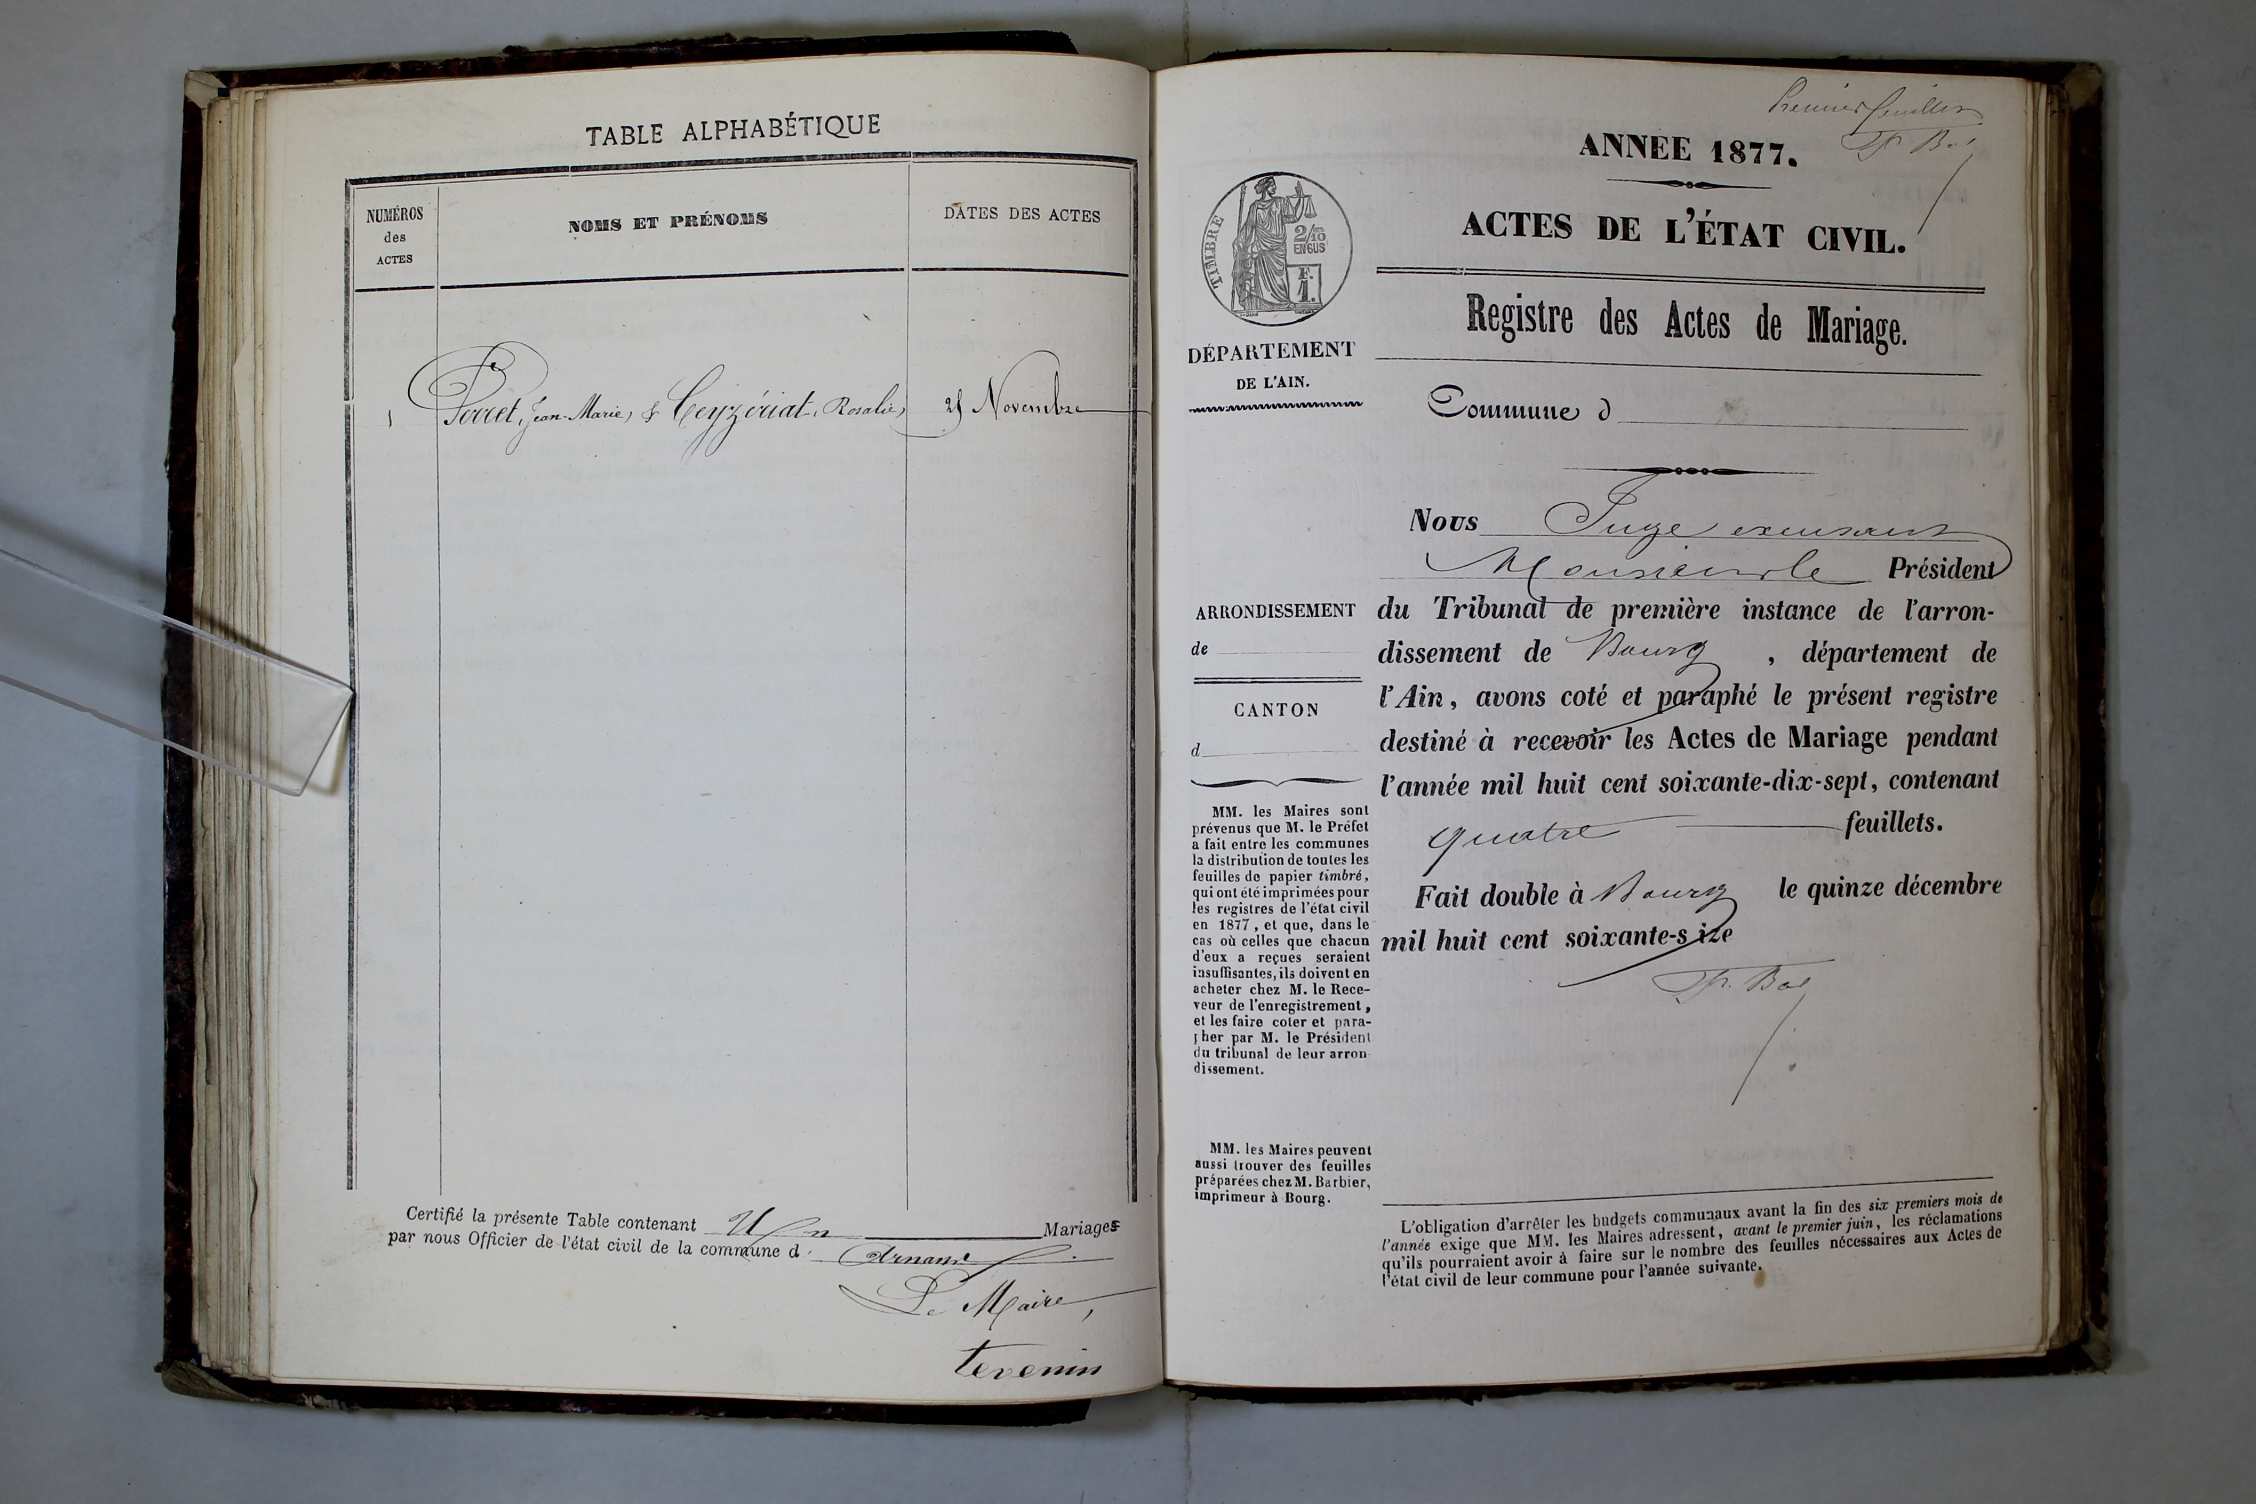 TABLE ALPHABÉTIQUE
NUMÉROS
des
ACTES
NOMS ET PRÉNOMS
DATES DES ACTES
1 Perret, Jean-Marie, & Ceyzériat, Rosalie, Novembre
Certifié la présente Table contenant Un Mariages
par nous Officier de l'état civil de la commune d' Arnans
Le Maire,
tevenin
Premier feuillet
ANNÉE 1877.
ACTES DE L'ÉTAT CIVIL.
Registre des Actes de Mariage.
Commune d
TIMBRE
2/10
EN SUS
F.
1.
DÉPARTEMENT
DE L'AIN.
ARRONDISSEMENT
de
CANTON
d
MM. les Maires sont
prévenus que M. le Préfet
a fait entre les communes
la distribution de toutes les
feuilles de papier timbré,
qui ont été imprimées pour
les registres de l'état civil
en 1877, et que, dans le
cas où celles que chacun
d'eux a reçues seraient
insuffisantes, ils doivent en
acheter chez M. le Rece-
veur de l'enregistrement,
et les faire coter et para-
pher par M. le Président
du tribunal de leur arron-
dissement.
MM. les Maires peuvent
aussi trouver des feuilles
préparées chez M. Barbier,
imprimeur à Bourg.
Nous Juge excusant
Monsieur le Président
du Tribunal de première instance de l'arron-
dissement de Bourg, département de
l'Ain, avons coté et paraphé le présent registre
destiné à recevoir les Actes de Mariage pendant
l'année mil huit cent soixante-dix-sept, contenant
quatre feuillets.
Fait double à Bourg le quinze décembre
mil huit cent soixante-s ize
L'obligation d'arrêter les budgets communaux avant la fin des six premiers mois de
l'année exige que MM. les Maires adressent, avant le premier juin, les réclamations
qu'ils pourraient avoir à faire sur le nombre des feuilles nécessaires aux Actes de
l'état civil de leur commune pour l'année suivante.